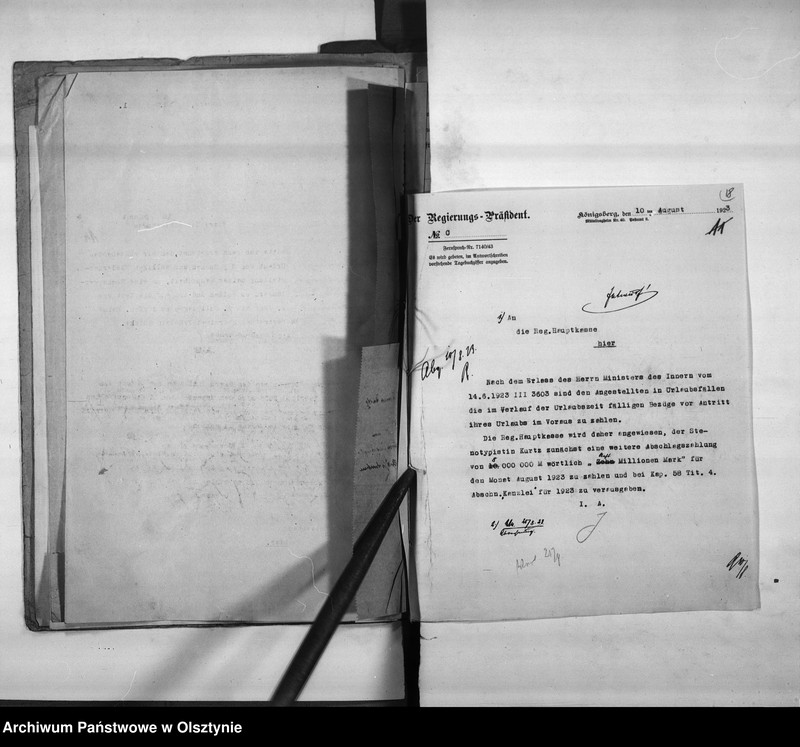 18
Der Regierungs-Präsident.
Königsberg, den 10 ten August 1923
Mitteltragheim Nr. 40.
№ C
Fernsprech-Nr. 7140/43
Es wird gebeten, im Antwortschreiben
vorstehende Tagebuchziffer anzugeben.
1/ An
die Reg.Hauptkasse
hier
Nach dem Erlass des Herrn Ministers des Innern vom
14.6.1923 III 3603 sind den Angestellten in Urlaubsfällen
die im Verlauf der Urlaubszeit fälligen Bezüge vor Antritt
ihres Urlaubs im Voraus zu zahlen.
Die Reg.Hauptkasse wird daher angewiesen, der Ste-
notypistin Kurtz zunächst eine weitere Abschlagszahlung
von 000 000 M wörtlich „ Millionen Mark" für
den Monat August 1923 zu zahlen und bei Kap. 58 Tit. 4.
Abschn. „Kanzlei" für 1923 zu verausgaben.
I. A.
2/
Archiwum Państwowe w Olsztynie